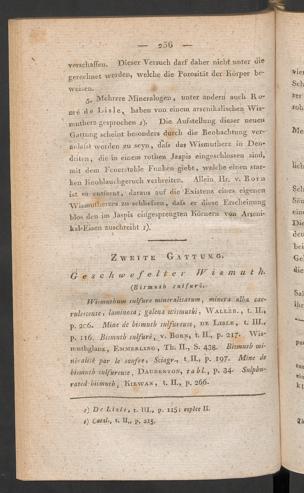 — 256 —
verschaffen. Dieser Versuch darf daher nicht unter die
gerechnet werden, welche die Porosität der Körper be-
weisen.
5. Mehrere Mineralogen, unter andern auch Ro-
mé de Lisle, haben von einem arsenikalischen Wis-
mutherz gesprochen s). Die Aufstellung dieser neuen
Gattung scheint besonders durch die Beobachtung ver-
anlaſst worden zu seyn, daſs das Wismutherz in Den-
driten, die in einem rothen Jaspis eingeschlossen sind,
mit dem Feuerstahle Funken giebt, welche einen star-
ken Knoblauchgeruch verbreiten. Allein Hr. v. Born
ist so entfernt, daraus auf die Existenz eines eigenen
Wismutherzes zu schlieſsen, daſs er diese Erscheinung
blos den im Jaspis eingesprengten Körnern von Arseni-
kal-Eisen zuschreibt t).
ZWEITE GATTUNG.
Geschwefelter Wismuth.
(Bismuth sulfuré.)
Wismuthum sulfure mineralisatum, minera alba cae-
rulescense, laminosa; galena wismuthi, WALLER. t. II.,
p. 206. Mine de bismuth sulfureuse, DE LISLE, t. III.,
p. 116. Bismuth sulfuré, v. BORN, t. II., p. 217. Wis-
muthglanz, EMMERLING, Th. II., S. 438. Bismuth mi-
néralisé par le soufre, Sciagr., t. II., p. 197. Mine de
bismuth sulfureuse, DAUBENTON, tabl., p. 34. Sulphu-
rated bismuth, KIRWAN, t. II., p. 266.
s) De Lisle, t. III., p. 115; espèce II.
t) Catal., t. II., p. 215.